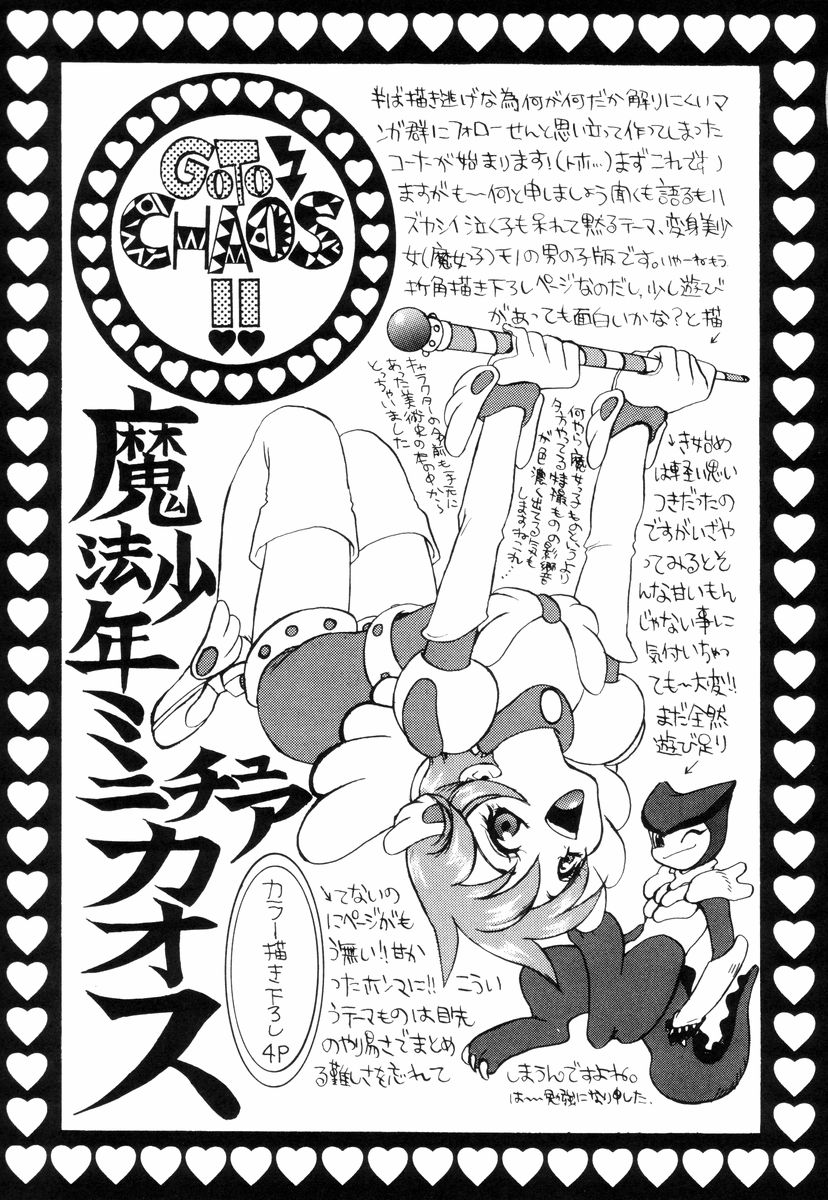 GOTO
CHAOS
!!
半ば描き逃げな為何が何だか解りにくいマ
ンガ群にフォローせんと思い立って作ってしまった
コーナーが始まります!(トホホ…)まずこれです
ますがも〜何と申しましょう聞くも語るもハ
ズカシイ泣く子も呆れて黙るテーマ、変身美少
女(魔女っ子)モノの男の子版です。いやーねもう
折角描き下ろしページなのだし、少し遊び
があっても面白いかな?と描
き始め
は軽い思い
つきだったの
ですがいざや
ってみるとそ
んな甘いもん
じゃない事に
気付いちゃっ
ても〜大変!!
まだ全然
遊び足り
てないの
にページがも
う無い!!甘か
ったホンマに!!こうい
うテーマものは目先
のやり易さでまとめ
る難しさを忘れて
しまうんですよね。
は〜勉強になり申した.
何やら魔女っ子ものというより
夕方やってる特撮ものの影響
が色濃く出てる気も
しますねこれ…
キャラクターの名前も手元に
あった美術史の本の中から
とっちゃいました
魔法少年ミニチュアカオス
カラー描き下ろし
4P